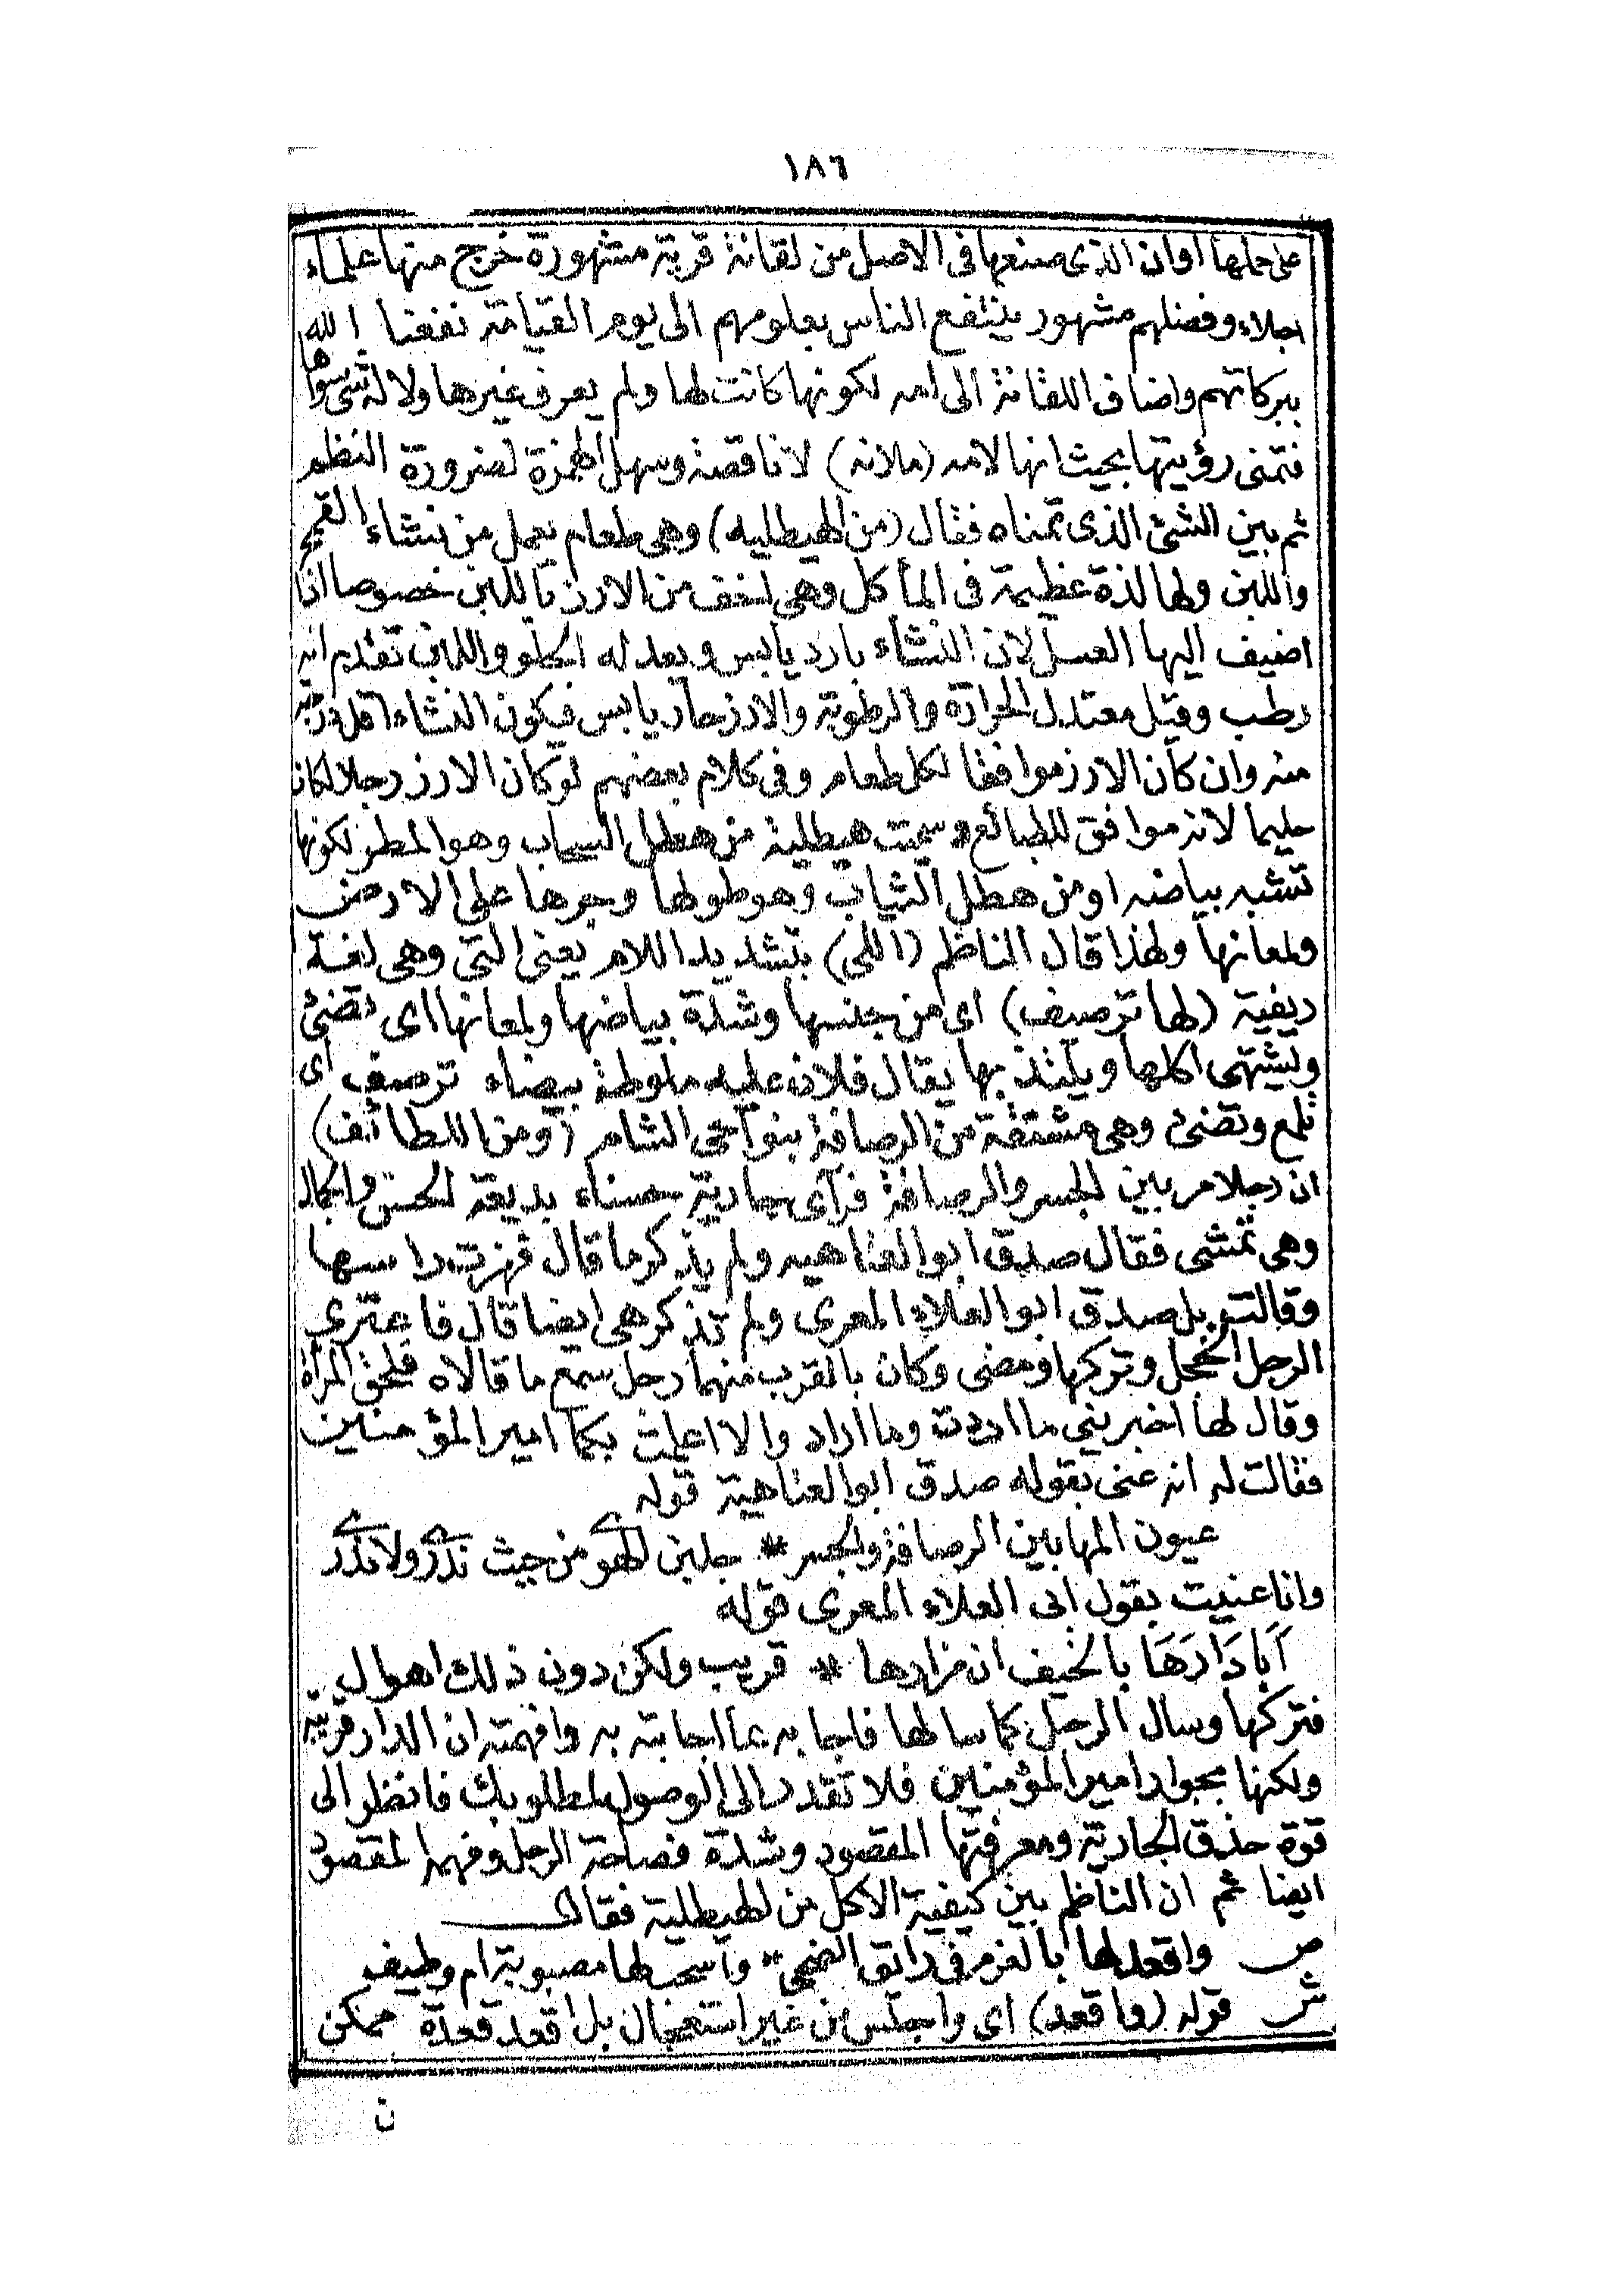 ١٨٦
على حملها او ان الذى صنعها فى الاصل من لقانة قرية مشهورة خرج منها علماء
اجلاء وفضلهم مشهور ينتفع الناس بعلومهم الى يوم القيامة نفعنا الله
ببركاتهم واضاف اللقانة الى امه لكونها كانت لها ولم يعرف غيرها ولا له شئ سواها
فتمنى رؤيتها بحيث انها لامه (ملانه) لا ناقصة وسهل الهمزة لضرورة النظم
ثم بين الشئ الذى تمناه فقال (من الهيطليه) وهى طعام يعمل من نشاء القمح
واللبن ولها لذة عظيمة فى المأكل وهى اخف من الارز باللبن خصوصا اذا
اضيف اليها العسل لان النشاء بارد يابس ويعدله الحلو واللبن تقدم انه
رطب وقيل معتدل الحرارة والرطوبة والارز حار يابس فيكون النشاء اقل درجة
منه وان كان الارز موافقا لكل طعام وفى كلام بعضهم لو كان الارز رجلا لكان
حليما لانه موافق للطبائع وسميت هيطلية من هطل السحاب وهو المطر لكونها
تشبه بياضه او من هطل الثياب وهو طولها وجرها على الارض
ولمعانها ولهذا قال الناظم (اللى) بتشديد اللام يعنى التى وهى لغة
ريفية (لها ترصيف) اى من جنسها وشدة بياضها ولمعانها اى تضئ
ويشتهى اكلها ويلتذ بها يقال فلان عليه ملوطة بيضاء ترصف اى
تلمع وتضئ وهى مشتقة من الرصافة بنواحى الشام (ومن اللطائف)
ان رجلا مر بين الجسر والرصافة فرآى جارية حسناء بديعة الحسن والجمال
وهى تمشى فقال صدق ابو العتاهيه ولم يذكر ما قال فهزت راسها
وقالت بل صدق ابو العلاء المعرى ولم تذكر هى ايضا قال فاعترى
الرجل الخجل وتركها ومضى وكان بالقرب منهما رجل سمع ما قالاه فلحق المرأة
وقال لها اخبرينى ما اردت وما اراد والا اعلمت بكما امير المؤمنين
فقالت له انه عنى بقوله صدق ابو العتاهية قوله
عيون المها بين الرصافة والجسر * جلبن الهوى من حيث ندرى ولا ندرى
وانا عنيت بقول ابى العلاء المعرى قوله
اَيَا دَارَهَا بالخيف ان مزارها * قريب ولكن دون ذلك اهوال
فتركها وسال الرجل كما سالها فاجابه بما اجابته به وافهمته ان الدار قريبة
ولكنها بجوار امير المؤمنين فلا تقدر الى الوصول لمطلوبك فانظر الى
قوة حذق الجارية ومعرفتها المقصود وشدة فصاحة الرجل وفهمه المقصود
ايضا ثم ان الناظم بين كيفية الاكل من الهيطلية فقال
ص واقعد لها بالعزم فى رائق الضحى * واسحب لها مصبوبة ام وطيف
ش قوله (واقعد) اى واجلس من غير استعجال بل اقعد قعدة ممكن
ن